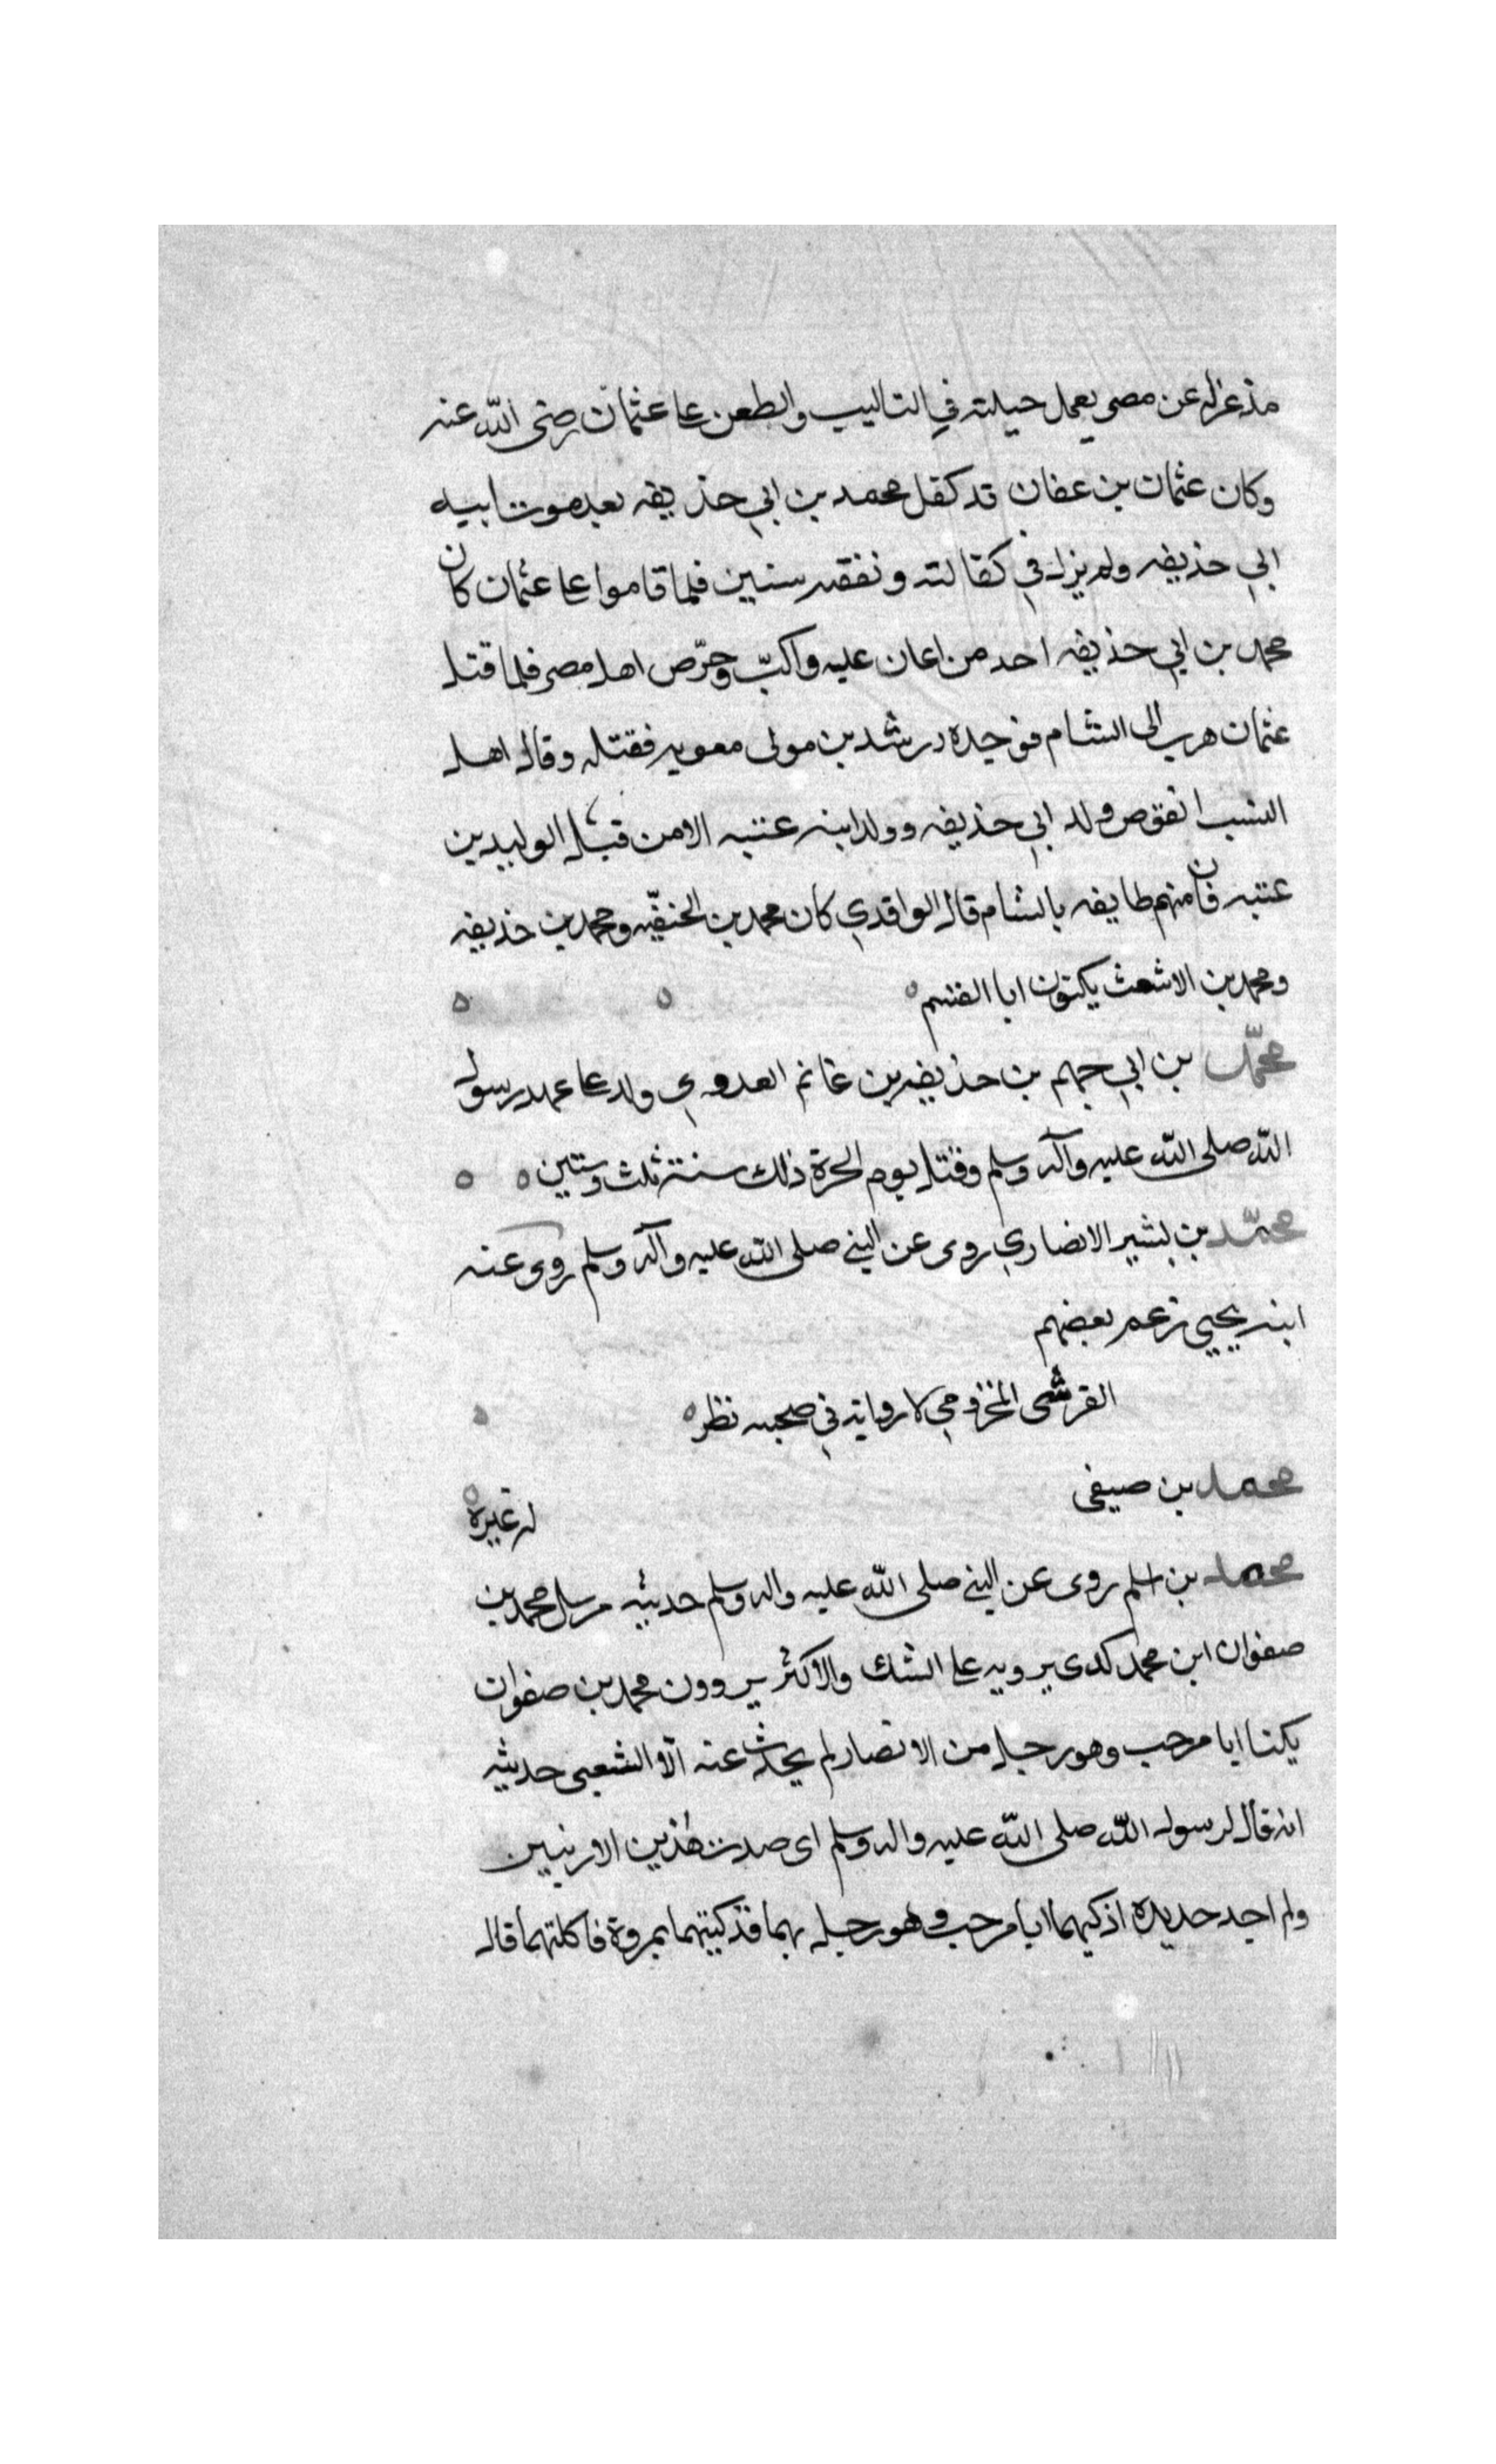 مذ عزله عن مصر يعمل حيلته في التاليب والطعن علي عثمان رضي الله عنه
وكان عثمان بن عفان قد كفل محمد بن ابي حذيفه بعد موت ابيه
ابي حذيفه ولم يزل في كفالته ونفقته سنين فلما قاموا علي عثمان كان
محمد بن ابي حذيفه احد من اعان عليه واكبّ وحرّص اهل مصر فلما قتل
عثمان هرب الى الشام فوجده رشدين مولى معويه فقتله وقال اهل
النسب انقرض ولد ابي حذيفه وولد ابنه عتبه الا من قبل الوليد بن
عتبه فان منهم طايفه بالشام قال الواقدي كان محمد بن الحنفيّه ومحمد بن حذيفه
ومحمد بن الاشعث يكتون ابا القسم
محمّد بن ابي جهم بن حذيفه بن غانم العدوي ولد علي عهد رسول
الله صلى الله عليه وآله وسلم وقتل يوم الحرة ذلك سنة ثلث وستين
محمّد بن بشير الانصاري روى عن النبي صلى الله عليه وآله وسلم روى عنه
ابنه يحيي زعم بعضهم
القرشى المخزومي لا رواية في صحبه نظر
محمد بن صيفى
له غيره
محمد بن اسلم روى عن النبي صلى الله عليه واله وسلم حديثه مرسل محمد بن
صفوان ابن محمد كدى يرويه علي الشك والاكثر يروون محمد بن صفوان
يكنا ابا مرحب وهو رجل من الانصار لم يحدث عنه الّا الشعبى حديثه
انه قال لرسول الله صلى الله عليه واله وسلم اى صدت هٰذين الارنبين
ولم اجد حديدة اذكيهما ابا مرحب وهو رجل بهما فذكيتهما بمروة فاكلتهما قال